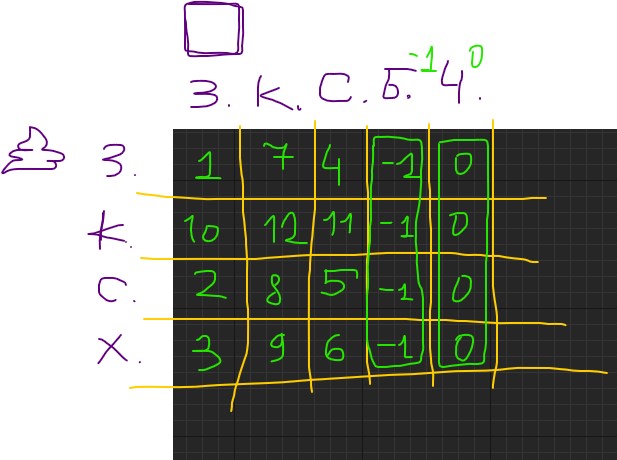 -1 0
З. К. С. Б. Ч.
З. 1 7 4 -1 0
К. 10 12 11 -1 0
С. 2 8 5 -1 0
Х. 3 9 6 -1 0